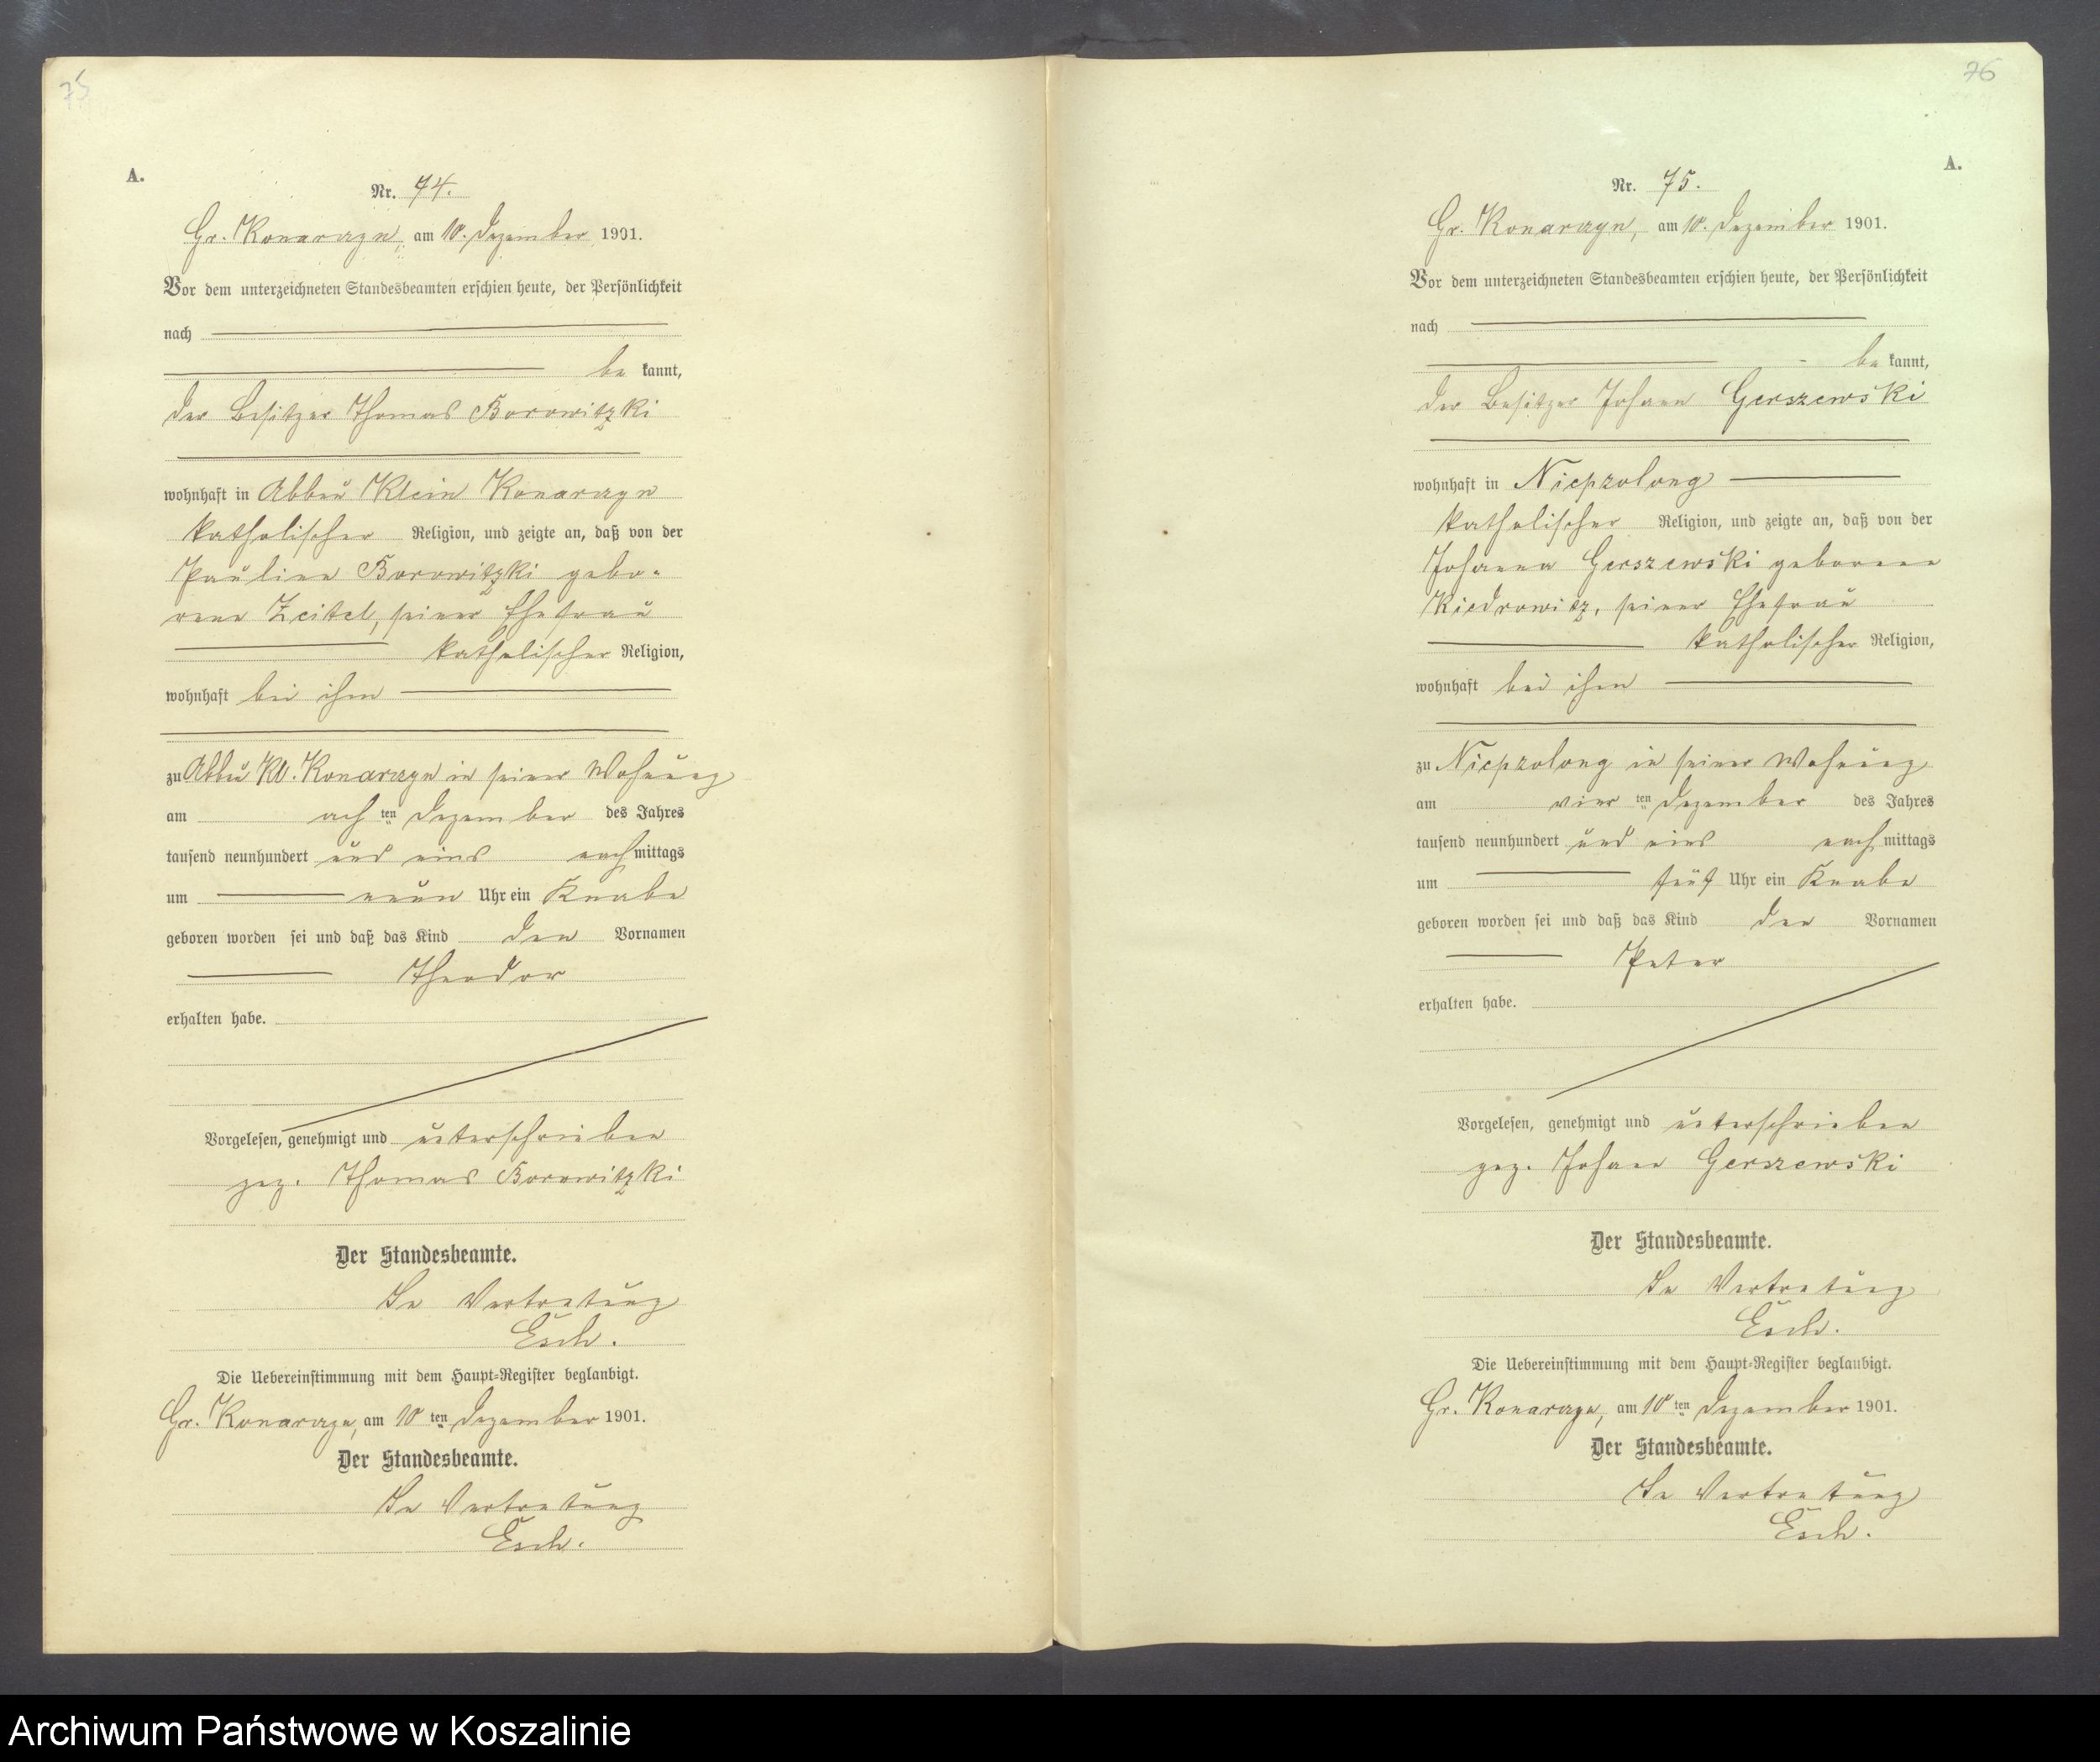 75
A.
Nr. 74.
Gr. Konarczyn, am 10. Dezember 1901.
Vor dem unterzeichneten Standesbeamten erschien heute, der Persönlichkeit
nach
be kannt,
der Besitzer Thomas Borowitzki
wohnhaft in Abbau Klein Konarczyn
katholischer Religion, und zeigte an, daß von der
Pauline Borowitzki gebo-
rene Zeitel, seiner Ehefrau
katholischer Religion,
wohnhaft bei ihm
zu Abbau Kl. Konarczyn in seiner Wohnung
am ach ten Dezember des Jahres
tausend neunhundert und eins nach mittags
um neun Uhr ein Knabe
geboren worden sei und daß das Kind den Vornamen
Theodor
erhalten habe.
Vorgelesen, genehmigt und unterschrieben
gez. Thomas Borowitzki
Der Standesbeamte.
In Vertretung
Esch.
Die Uebereinstimmung mit dem Haupt-Register beglaubigt.
Gr. Konarczyn, am 10 ten Dezember 1901.
Der Standesbeamte.
In Vertretung
Esch.
76
A.
Nr. 75.
Gr. Konarczyn, am 10. Dezember 1901.
Vor dem unterzeichneten Standesbeamten erschien heute, der Persönlichkeit
nach
be kannt,
der Besitzer Johann Gerszewski
wohnhaft in Niepzolong
katholischer Religion, und zeigte an, daß von der
Johanna Gerszewski geborene
Kiedrowicz, seiner Ehefrau
katholischer Religion,
wohnhaft bei ihm
zu Niepzolong in seiner Wohnung
am vier ten Dezember des Jahres
tausend neunhundert und eins nach mittags
um fünf Uhr ein Knabe
geboren worden sei und daß das Kind den Vornamen
Peter
erhalten habe.
Vorgelesen, genehmigt und unterschrieben
gez. Johann Gerszewski
Der Standesbeamte.
In Vertretung
Esch.
Die Uebereinstimmung mit dem Haupt-Register beglaubigt.
Gr. Konarczyn, am 10 ten Dezember 1901.
Der Standesbeamte.
In Vertretung
Esch.
Archiwum Państwowe w Koszalinie